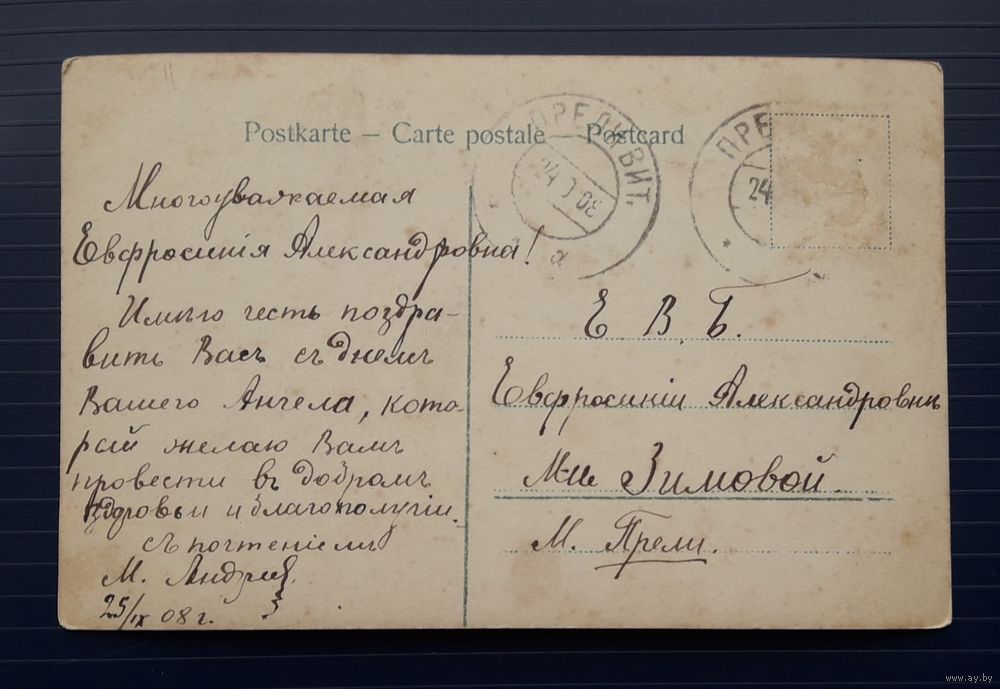 Postkarte – Carte postale – Postcard
ПРЕЛИ ВИТ.
24 9 08
а
ПРЕ
24
Многоуважаемая
Евфросинія Александровна!
Имѣю честь поздра-
вить Васъ съ днемъ
Вашего Ангела, кото-
рый желаю Вамъ
провести въ добромъ
здоровьи и благополучіи.
съ почтеніемъ
М.
25/IX 08 г.
Е. В. Б.
Евфросиніи Александровнѣ
Зимовой.
М. Прели.
www.ay.by